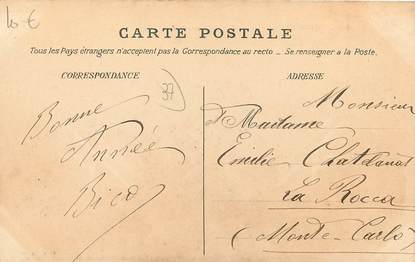 10 €
CARTE POSTALE
Tous les Pays étrangers n'acceptent pas la Correspondance au recto _ Se renseigner à la Poste.
CORRESPONDANCE
37
ADRESSE
Bonne
Année
Bico
Monsieur
Madame
Emilie
La Rocca
Monte-Carlo